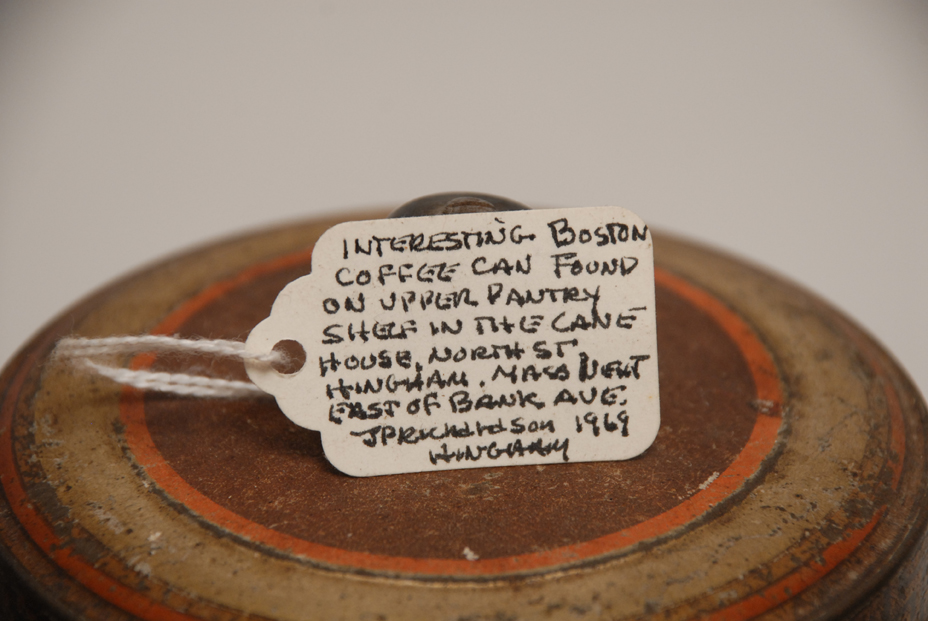 INTERESTING BOSTON
COFFEE CAN FOUND
ON UPPER PANTRY
SHELF IN THE CANE
HOUSE, NORTH ST,
HINGHAM. MASS NEXT
EAST OF BANK AVE.
JPRichardson 1969
HINGHAM